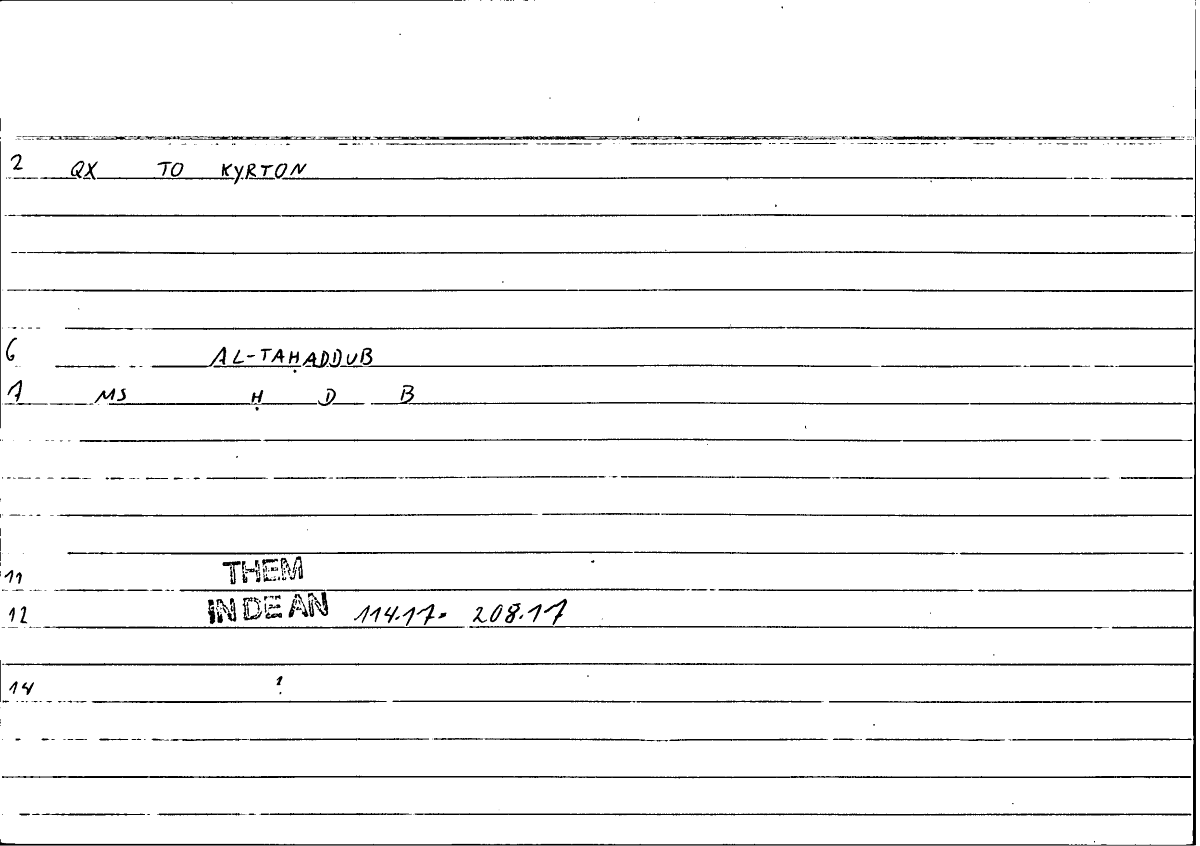 2 QX TO KYRTON
6 AL-TAḤADDUB
7 MS Ḥ D B
11 THEM
12 IN DE AN 114.17. 208.17
14 ?